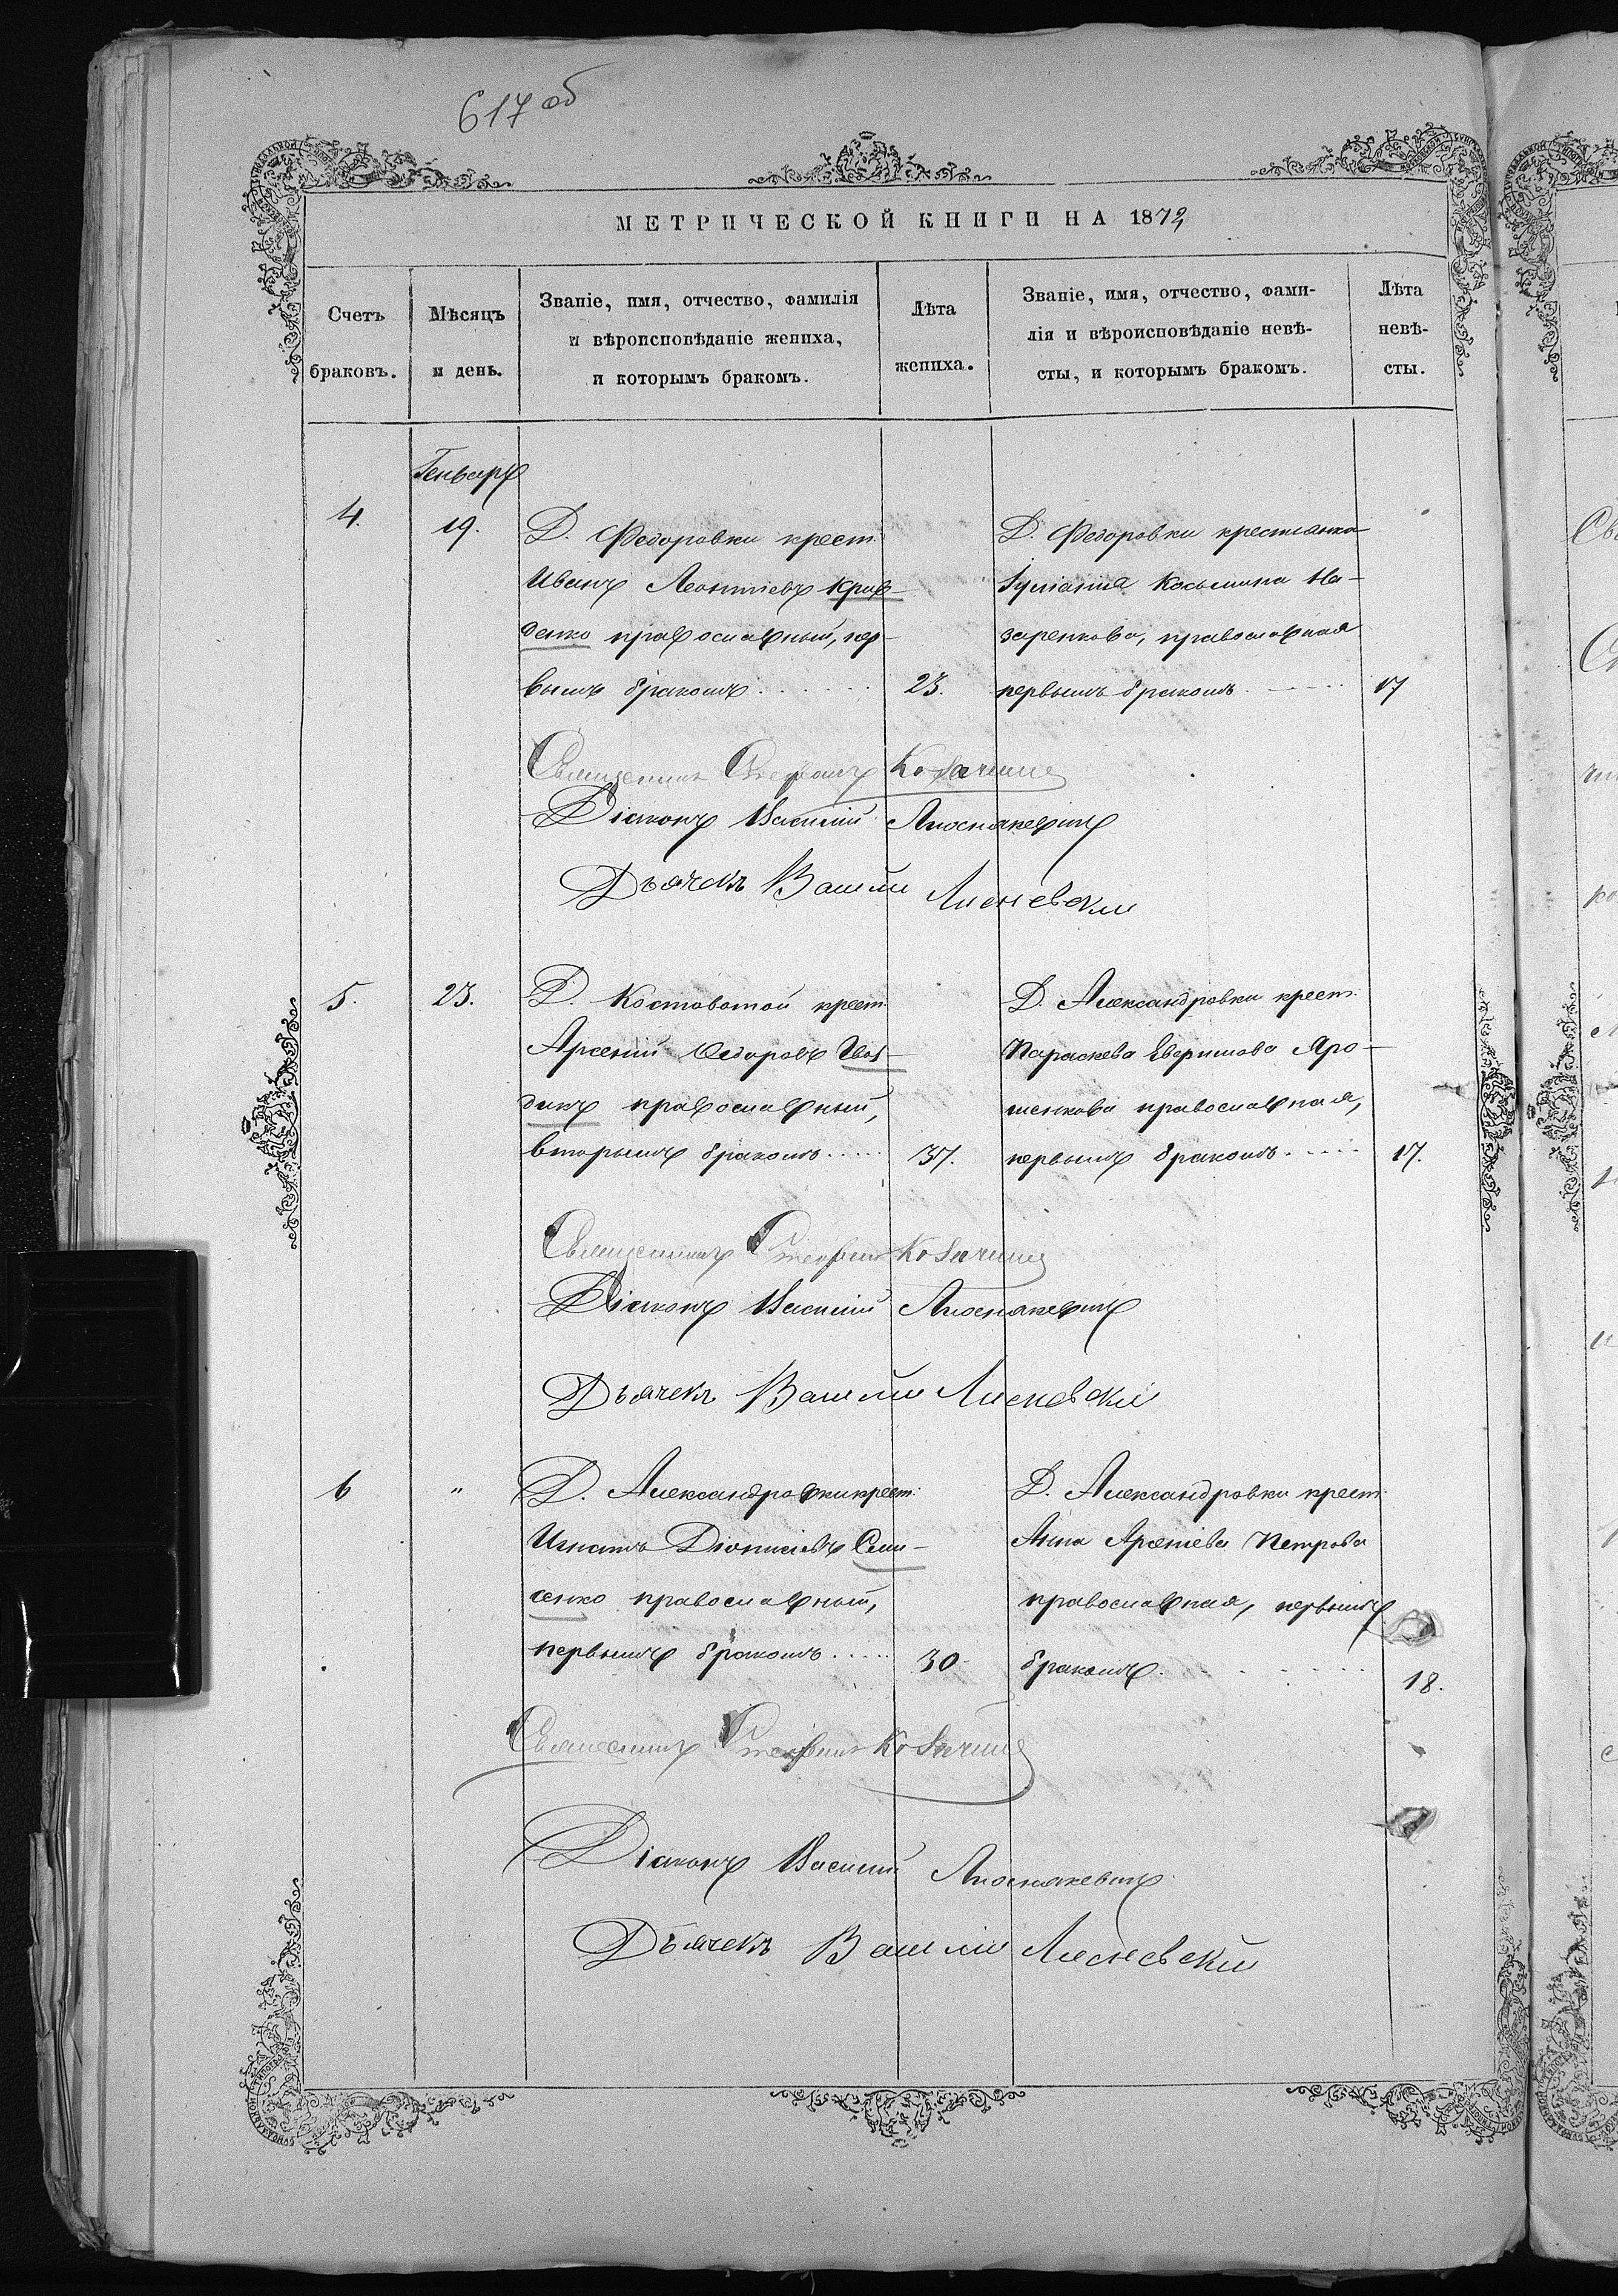 617 об
МЕТРИЧЕСКОЙ КНИГИ НА 1872
Счетъ браковъ.
Мѣсяцъ и день.
Званіе, имя, отчество, фамилія
и вѣроисповѣданіе жениха,
и которымъ бракомъ.
Лѣта жениха.
Званіе, имя, отчество, фами-
лія и вѣроисповѣданіе невѣ-
сты, и которымъ бракомъ.
Лѣта невѣ-
сты.
Генваръ
4.
19.
Д. Федоровки крест.
Иванъ Леонтіевъ Крив-
денко православный, пер-
вымъ бракомъ
23.
Д. Федоровки крестьянка
Іуліанія Косьмина На-
заренкова, православная
первымъ бракомъ
17
Священникъ Стефанъ Козачинс
Діаконъ Василій
Дьячекъ Василий Лисневски
5.
23.
Д. Костоватой крест.
Арсеній Федоровъ Гвоз-
дикъ православный,
вторымъ бракомъ
37.
Д. Александровки крест.
Параскева Евфимова Яро-
шенкова православная,
первымъ бракомъ
17.
Священникъ Стефанъ Козачинс
Діаконъ Василій
Дьячекъ Василий Лисневскій
6
"
Д. Александровки крест.
Игнатъ Діонисіевъ Сем-
сенко православный,
первымъ бракомъ
30
Д. Александровки крест.
Анна Арсеніева Петрова
православная, первымъ
бракомъ
18.
Священникъ Стефанъ Козачинс
Діаконъ Василій
Дьячекъ Василий Лисневский